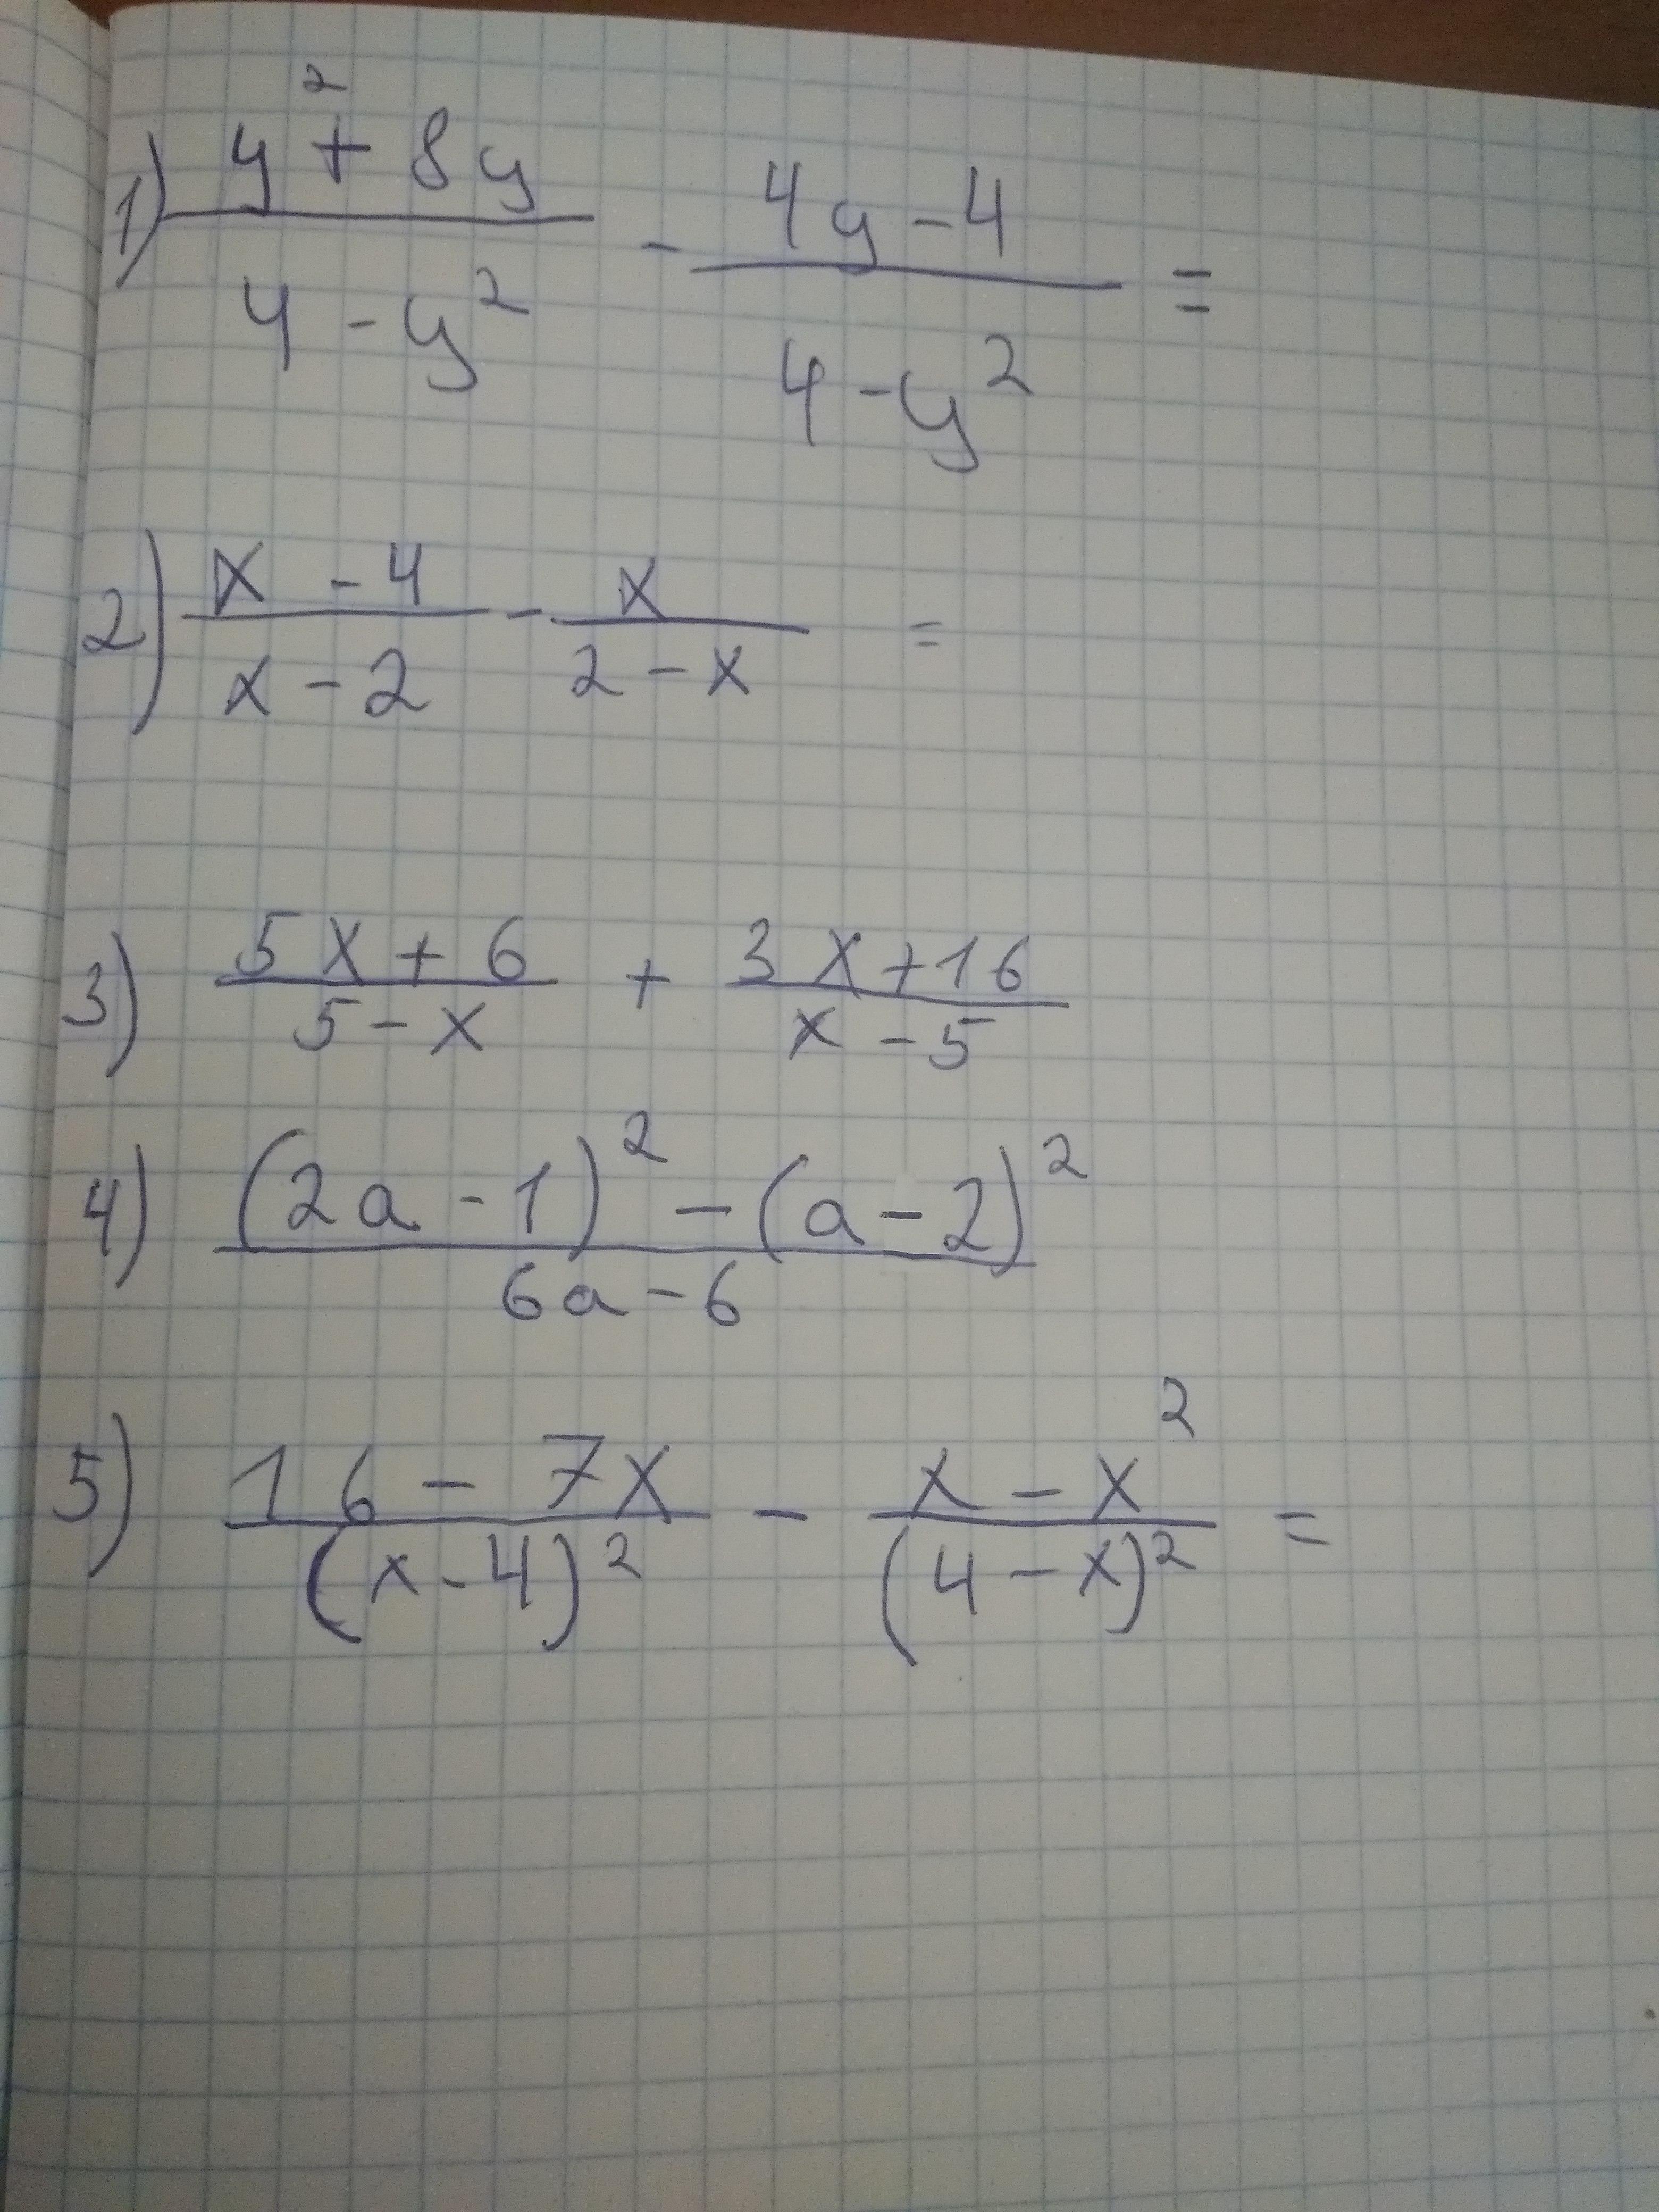 1) (y² + 8y)/(4 - y²) - (4y - 4)/(4 - y²) =
2) (x - 4)/(x - 2) - x/(2 - x) =
3) (5x + 6)/(5 - x) + (3x + 16)/(x - 5)
4) ((2a - 1)² - (a - 2)²)/(6a - 6)
5) (16 - 7x)/(x - 4)² - (x - x²)/(4 - x)² =